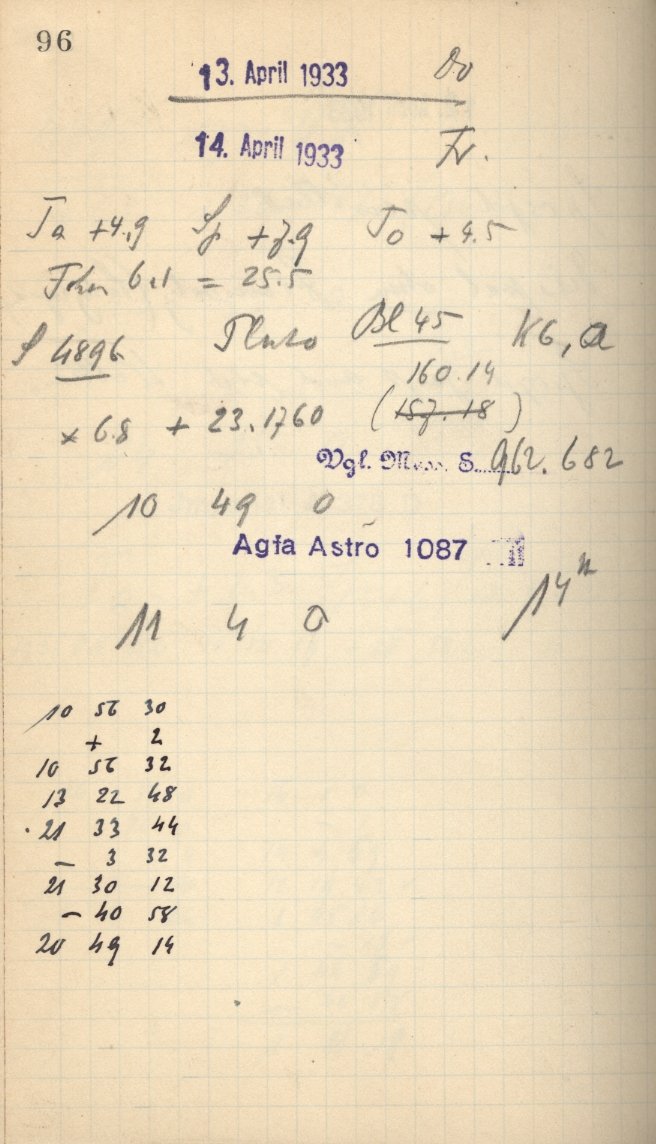 96
13. April 1933 Do
14. April 1933 Fr.
Ta +4.9 Sp +7.9 To +4.5
= 25.5
S 4896 Pluto Bl 45 K6, a
160.14
x 68 + 23.1760 (157.18)
Vgl. S. 962.682
10 49 0
Agfa Astro 1087
11 4 0 14
10 56 30
+ 2
10 56 32
13 22 48
21 33 44
- 3 32
21 30 12
- 40 58
20 49 14